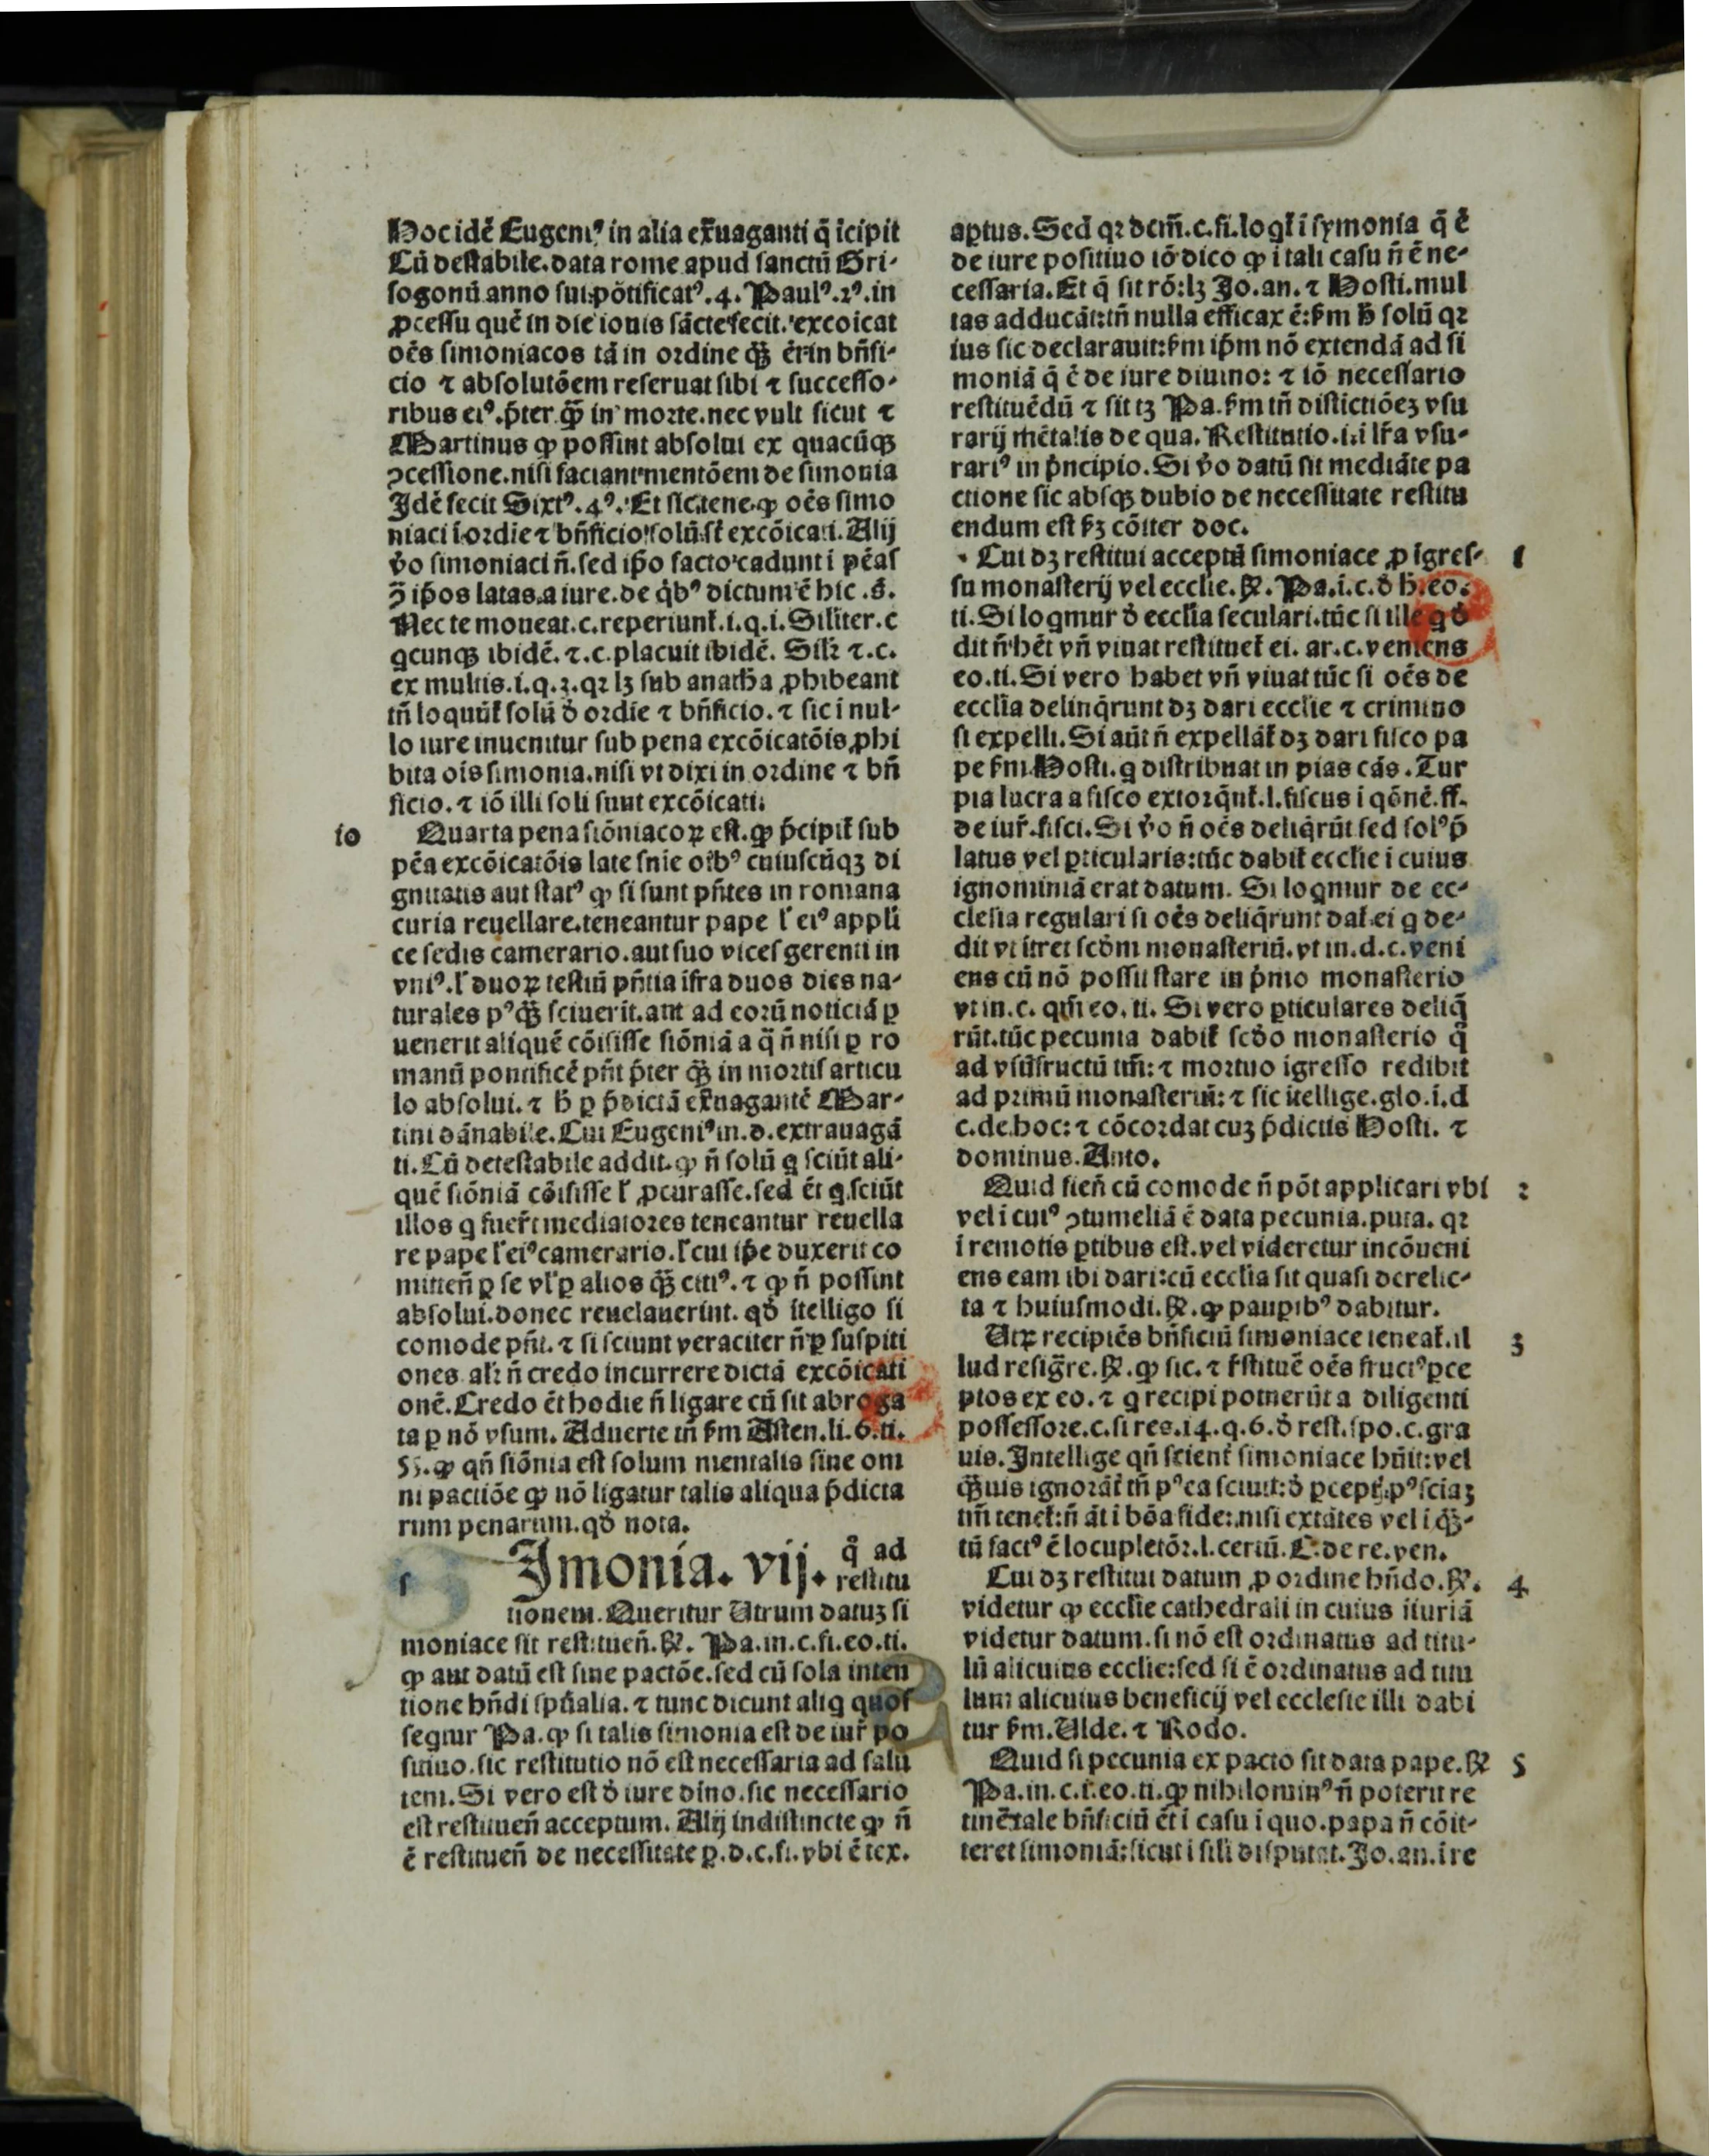 Hoc idē Eugeniꝰ in alia exͬuaganti q̄ icipit
Cū destabile.data rome apud sanctū Gri-
sogonū anno sui pōtificatꝰ.4. Paulꝰ.2ꝰ.in
ꝓcessu quē in die iouis sācte fecit.excoicat
oēs simoniacos tā in ordine q̄ꝫ ēt in bn̄fi-
cio ⁊ absolutōem reseruat sibi ⁊ successo-
ribus eiꝰ.p̄ter q̄ꝫ in morte.nec vult sicut ⁊
Martinus ꝙ possint absolui ex quacūqꝫ
ꝯcessione.nisi faciant mentōem de simonia
Idē fecit Sixtꝰ.4ꝰ. Et sic tene ꝙ oēs simo
niaci i ordie ⁊ bn̄ficio solū st̄ excōicati. Alij
v̄o simoniaci n̄.sed ip̄o facto cadunt i pēas
ꝯ̄ ip̄os latas a iure.de q̇bꝰ dictum ē hic.s̄.
Nec te moueat.c.reperiunt̄.i.q.i. Silīter.c
qcunqꝫ ibidē.⁊.c.placuit ibidē. Sil̄r ⁊.c.
ex multis.i.q.3.qꝛ lꝫ sub anath̄a ꝓhibeant
tn̄ loquūt̄ solū ō ordie ⁊ bn̄ficio.⁊ sic i nul-
lo iure inuenitur sub pena excōicatōis ꝓhi
bita oīs simonia.nisi vt dixi in ordine ⁊ bn̄
ficio.⁊ iō illi soli sunt excōicati.
10 Quarta pena siōniacoꝝ est.ꝙ p̄cipit̄ sub
pēa excōicatōis late sn̄ie oībꝰ cuiuscūqꝫ di
gnitatis aut statꝰ ꝙ si sunt pn̄tes in romana
curia reuellare.teneantur pape l̄ eiꝰ appl̄i
ce sedis camerario.aut suo vices gerenti in
vniꝰ.l̄ duoꝝ testiū pn̄tia ifra duos dies na-
turales pꝰq̄ꝫ sciuerit.aut ad eorū noticiā ꝑ
uenerit aliquē cōisisse siōniā a q̄ n̄ nisi ꝑ ro
manū pontificē pn̄t p̄ter q̄ꝫ in mortis articu
lo absolui.⁊ h̄ ꝑ p̄dictā exͬuagantē Mar-
tini dānabile.Cui Eugeniꝰ in.d.extrauagā
ti.Cū detestabile addit.ꝙ n̄ solū q sciūt ali-
quē siōniā cōisisse l̄ ꝓcurasse.sed ēt q.sciūt
illos q fuer̄t mediatores teneantur reuella
re pape l̄ eiꝰ camerario.l̄ cui ip̄e duxerit co
mitten̄ ꝑ se vl̄ ꝑ alios q̄ꝫ citiꝰ.⁊ ꝙ n̄ possint
absolui.donec reuelauerint.qō itelligo si
comode pn̄t.⁊ si sciunt veraciter n̄ ꝑ suspiti
ones al̄r n̄ credo incurrere dictā excōicati
onē.Credo ēt hodie n̄ ligare cū sit abroga
ta ꝑ nō vsum. Aduerte tn̄ ẜm Asten.li.6.ti.
55.ꝙ qn̄ siōnia est solum mentalis sine om
ni pactiōe ꝙ nō ligatur talis aliqua p̄dicta
rum penarum.qō nota.
s Imonia. vij. q̊ ad
restitu
tionem. Queritur Utrum datuꝫ si
moniace sit restituen̄.℟. Pa.in.c.fi.eo.ti.
ꝙ aut datū est sine pactōe.sed cū sola inten
tione hn̄di spūalia.⁊ tunc dicunt aliq quos
seqtur Pa.ꝙ si talis simonia est de iur̄ po
sitiuo.sic restitutio nō est necessaria ad salu
tem. Si vero est ō iure dīno.sic necessario
est restituen̄ acceptum. Alij indistincte ꝙ n̄
ē restituen̄ de necessitate ꝑ.d.c.fi.vbi ē tex.
aptus. Sed qꝛ dcm̄.c.fi.loqt̄ i symonia q̄ ē
de iure positiuo iō dico ꝙ i tali casu n̄ ē ne-
cessaria. Et q̄ sit rō:lꝫ Jo.an.⁊ Hosti.mul
tas adducāt:tn̄ nulla efficax ē:ẜm h̄ solū qꝛ
ius sic declarauit:ẜm ip̄m nō extendā ad si
moniā q̄ ē de iure diuino:⁊ iō necessario
restituēdū ⁊ sit tꝫ Pa.ẜm tn̄ distictiōeꝫ vsu
rarij mētalis de qua. Restitutio.i.i lr̄a vsu-
rariꝰ in p̄ncipio. Si v̄o datū sit mediāte pa
ctione sic absqꝫ dubio de necessitate restitu
endum est ẜꝫ cōiter doc.
Cui dꝫ restitui acceptū simoniace ꝓ igres- 1
su monasterij vel ecclie.℟. Pa.i.c.ō h̄.eo.
ti. Si loqmur ō ecclīa seculari.tūc si ille q ō
dit n̄ hēt vn̄ viuat restituet̄ ei. ar.c.veniens
eo.ti. Si vero habet vn̄ viuat tūc si oēs de
ecclīa delinq̄runt dꝫ dari ecclīe ⁊ crimino
si expelli. Si aūt n̄ expellāt̄ dꝫ dari fisco pa
pe ẜm Hosti.q distribuat in pias cās. Tur
pia lucra a fisco extorq̄nt̄.l.fiscus i qōnē.ff.
de iur̄.fisci. Si v̄o n̄ oēs deliq̄rūt sed solꝰ p̄
latus vel ꝑticularis:tūc dabit̄ ecclīe i cuius
ignominiā erat datum. Si loqmur de ec-
clesia regulari si oēs deliq̄runt dat̄ ei q de-
dit vt itret scdm̄ monasteriū.vt in.d.c.veni
ens cū nō possit stare in p̄mo monasterio
vt in.c. qm̄ eo. ti. Si vero ꝑticulares deliq̄
rūt.tūc pecunia dabit̄ scdo monasterio q̄
ad vsūfructū tm̄:⁊ mortuo igresso redibit
ad primū monasteriū:⁊ sic itellige.glo.i.d
c.de hoc:⁊ cōcordat cuꝫ p̄dictis Hosti. ⁊
dominus. Anto.
Quid fien̄ cū comode n̄ pōt applicari vbi 2
vel i cuiꝰ ꝯtumeliā ē data pecunia.puta. qꝛ
i remotis ꝑtibus est.vel videretur incōueni
ens eam ibi dari:cū ecclīa sit quasi derelic-
ta ⁊ huiusmodi.℟.ꝙ pauꝑibꝰ dabitur.
Utꝝ recipiēs bn̄ficiū simoniace teneat̄.il 3
lud resigr̄e.℟.ꝙ sic.⁊ r̄stituē oēs fructꝰ ꝑce
ptos ex eo.⁊ q recipi potuerūt a diligenti
possessore.c.si res.14.q.6.ō rest.spo.c.gra
uis. Intellige qn̄ scient̄ simoniace hūit:vel
q̄ꝫuis ignorāt̄ tn̄ pꝰea sciuit:ō ꝑcept̄.pꝰ sciaꝫ
tm̄ tenet̄:n̄ āt i bōa fide:nisi extātes vel i q̄ꝫ-
tū factꝰ ē locupletōꝛ.l.certū.C.de re.ven.
Cui dꝫ restitui datum ꝓ ordine hn̄do.℟. 4
videtur ꝙ ecclīe cathedrali in cuius iiuriā
videtur datum.si nō est ordinatus ad titu-
lū alicuius ecclīe:sed si ē ordinatus ad titu
lum alicuius beneficij vel ecclesie illi dabi
tur ẜm. Ulde.⁊ Rodo.
Quid si pecunia ex pacto sit data pape.℟ 5
Pa.in.c.i.eo.ti.ꝙ nihilominꝰ n̄ poterit re
tinē tale bn̄ficiū ēt i casu i quo.papa n̄ cōit-
teret simoniā:sicut i sili disputat. Jo.an.i re